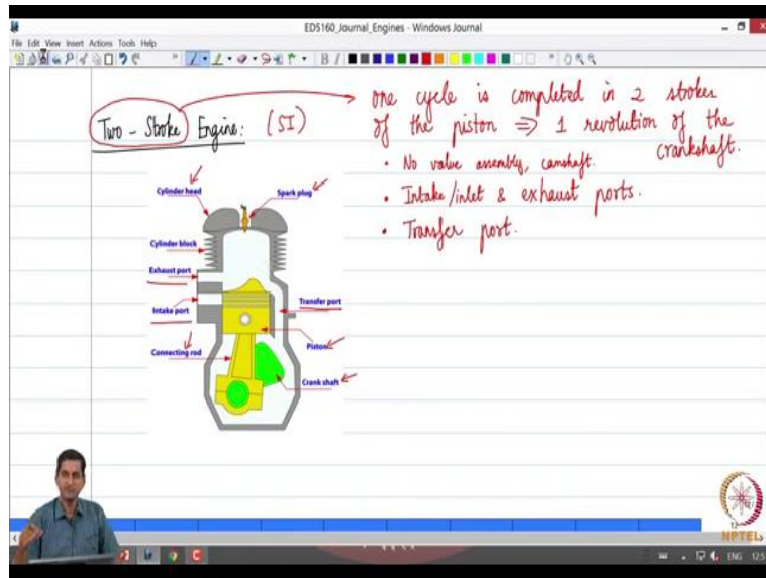 ED5160_Journal_Engines - Windows Journal
File Edit View Insert Actions Tools Help
Two - Stroke Engine: (SI)
one cycle is completed in 2 strokes
of the piston => 1 revolution of the
crankshaft.
• No valve assembly, camshaft.
• Intake/inlet & exhaust ports.
• Transfer port.
Cylinder head
Spark plug
Cylinder block
Exhaust port
Intake port
Transfer port
Connecting rod
Piston
Crank shaft
NPTEL
ENG